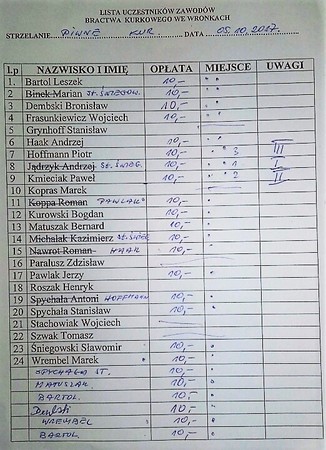 LISTA UCZESTNIKÓW ZAWODÓW
BRACTWA KURKOWEGO WE WRONKACH
STRZELANIE PIWNE KUR. DATA 05.10.2017
l.p NAZWISKO I IMIĘ OPŁATA MIEJSCE UWAGI
1. Bartol Leszek 10,-
2 Binek Marian ST. ŚNIEGOW. 10,-
3 Dembski Bronisław 10,-
4 Frasunkiewicz Wojciech 10,-
5 Grynhoff Stanisław
6 Haak Andrzej 10,-
7 Hoffmann Piotr 10,- 3 III
8 Jądrzyk Andrzej ST. ŚNIEG. 10,- 1 I
9 Kmieciak Paweł 10,- 2 II
10 Kopras Marek
11 Koppa Roman PAWLAK 10,-
12 Kurowski Bogdan 10,-
13 Matuszak Bernard 10,-
14 Michalak Kazimierz ST. ŚNIEG 10,-
15 Nawrot Roman HAAK 10,-
16 Paralusz Zdzisław
17 Pawlak Jerzy 10,-
18 Roszak Henryk
19 Spychała Antoni HOFFMANN 10,-
20 Spychała Stanisław 10,-
21 Stachowiak Wojciech
22 Szwak Tomasz
23 Śniegowski Sławomir 10,-
24 Wrembel Marek 10,-
SPYCHAŁA ST. 10,-
MATUSZAK 10,-
BARTOL 10,-
Dembski 10,-
WREMBEL 10,-
BARTOL 10,-